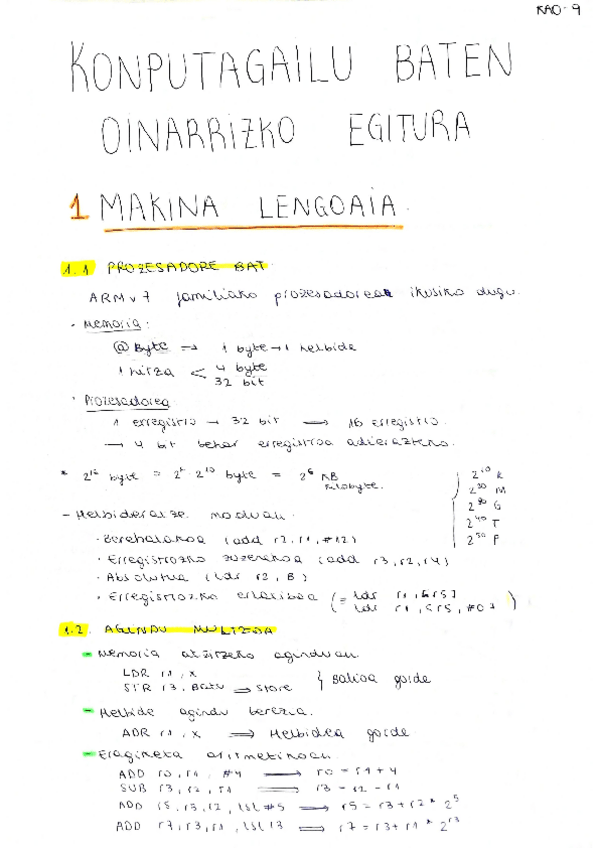 KAO-9
KONPUTAGAILU BATEN
OINARRIZKO EGITURA
1 MAKINA LENGOAIA.
1.1 PROZESADORE BAT
ARMv7 familiako prozesadoreak ikusiko dugu.
· Memoria:
@ Byte → 1 byte → 1 helbide
1 hitza < 4 byte
32 bit
· Prozesadorea
1 erregistro → 32 bit → 16 erregistro.
→ 4 bit behar erregistroa adierazteko.
byte = byte = 2⁶ KB
kilobyte.
2¹⁰ K
M
G
2⁴⁰ T
2⁵⁰ P
- Helbideratze moduak.
· Berehalakoa (add r2, r1, #12)
· Erregistrozko zuzenekoa (add r3, r2, r4)
· Absolutua (ldr r2, B)
· Erregistrozko erlatiboa (= ldr r1, [r5]
ldr r1, [r5, #0] )
1.2. AGINDU MULTZOA
- Memoria atzitzeko aginduak.
LDR r1, x
STR r3, Batu → Store } Balioa gorde
- Helbide agindu berezia.
ADR r1, x → Helbidea gorde
- Eragiketa aritmetikoak.
ADD r0, r1, #4 → r0 = r1 + 4
SUB r3, r2, r1 → r3 = r2 - r1
ADD r5, r3, r2, lsl #5 → r5 = r3 + r2 * 2⁵
ADD r7, r3, r1, lsl r3 → r7 = r3 + r1 * 2ʳ³